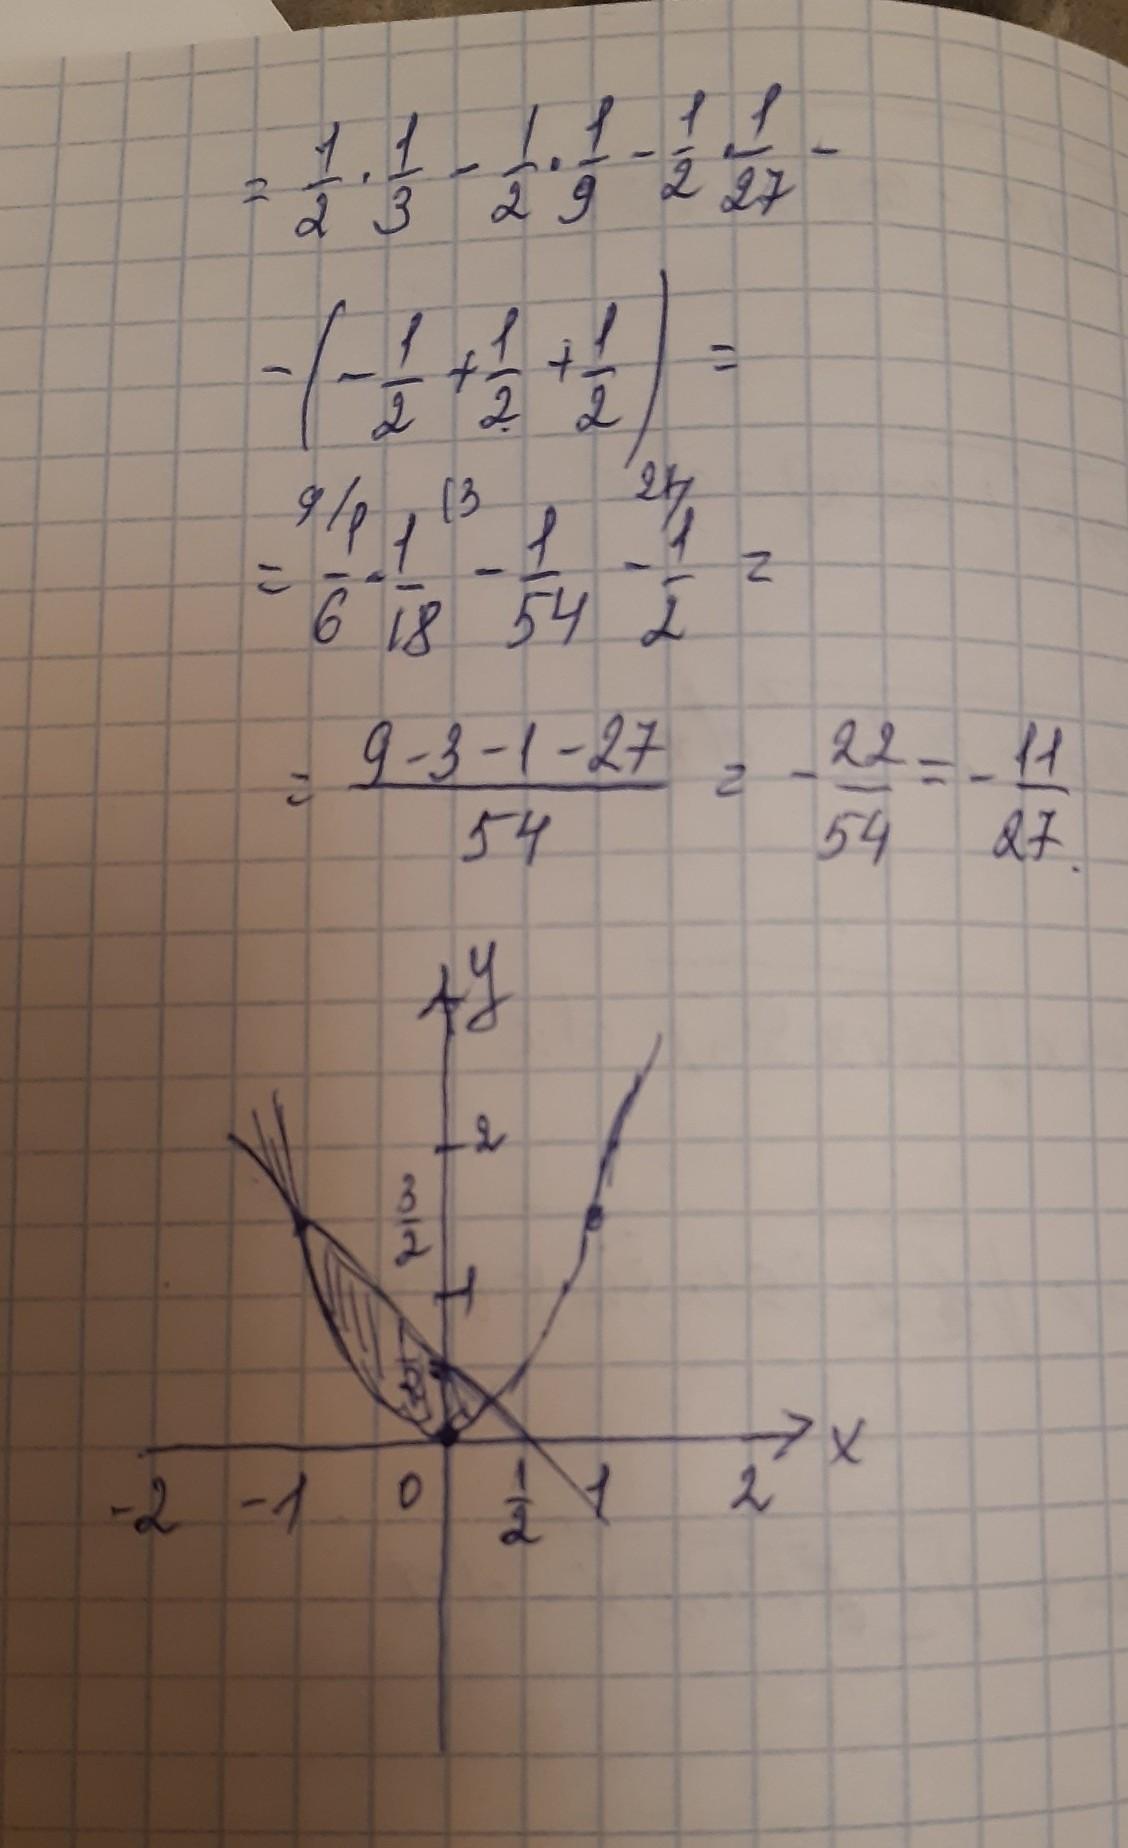 = 1/2 · 1/3 - 1/2 · 1/9 - 1/2 · 1/27 -
- ( - 1/2 + 1/2 + 1/2 ) =
9/ (3 27/
= 1/6 - 1/18 - 1/54 - 1/2 =
= (9 - 3 - 1 - 27)/54 = - 22/54 = - 11/27.
y
2
3/2
1
x
-2 -1 0 1/2 1 2